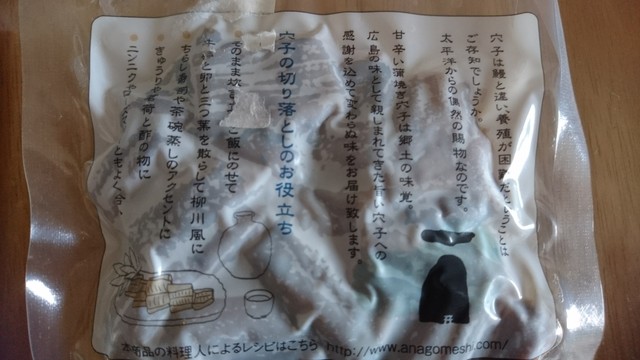 穴子は鰻と違い、養殖が困難だということは
ご存知でしょうか。
太平洋からの偶然の賜物なのです。
甘辛い蒲焼き穴子は郷土の味覚。
広島の味として親しまれてきた 穴子への
感謝を込めて変わらぬ味をお届け致します。
穴子の切り落としのお役立ち
そのまま炊き ご飯にのせて
卵と三つ葉を散らして柳川風に
ちらし寿司や茶碗蒸しのアクセントに
きゅうり 茗荷と酢の物に
ニンニク ともよく合う。
料理人によるレシピはこちら http://www.anagomeshi.com/